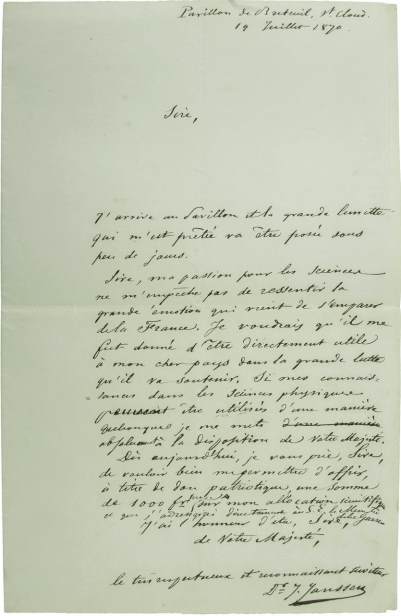 Pavillon de Breteuil, St Cloud.
19 Juillet 1870
Sire,
J'arrive au Pavillon et la grande lunette
qui m'est prêtée va être posée sous
peu de jours.
Sire, ma passion pour les sciences
ne m'empêche pas de ressentir la
grande émotion qui vient de s'emparer
de la France. Je voudrais qu'il me
fut donné d'être directement utile
à mon cher pays dans la grande lutte
qu'il va soutenir. Si mes connais-
sances dans les sciences physiques
pouvaient être utilisées d'une manière
quelconque je me mets d'une manière
absolue à la disposition de Votre Majesté.
Dès aujourd'hui, je vous prie, Sire,
de vouloir bien me permettre d'offrir,
à titre de don patriotique une somme
de 1000 fr sur mon allocation scientifique
et que j'adresserai directement à S. E. le Ministre
J'ai l'honneur d'être, Sire,
de Votre Majesté,
le très respectueux et reconnaissant serviteur
Dr J. Janssen